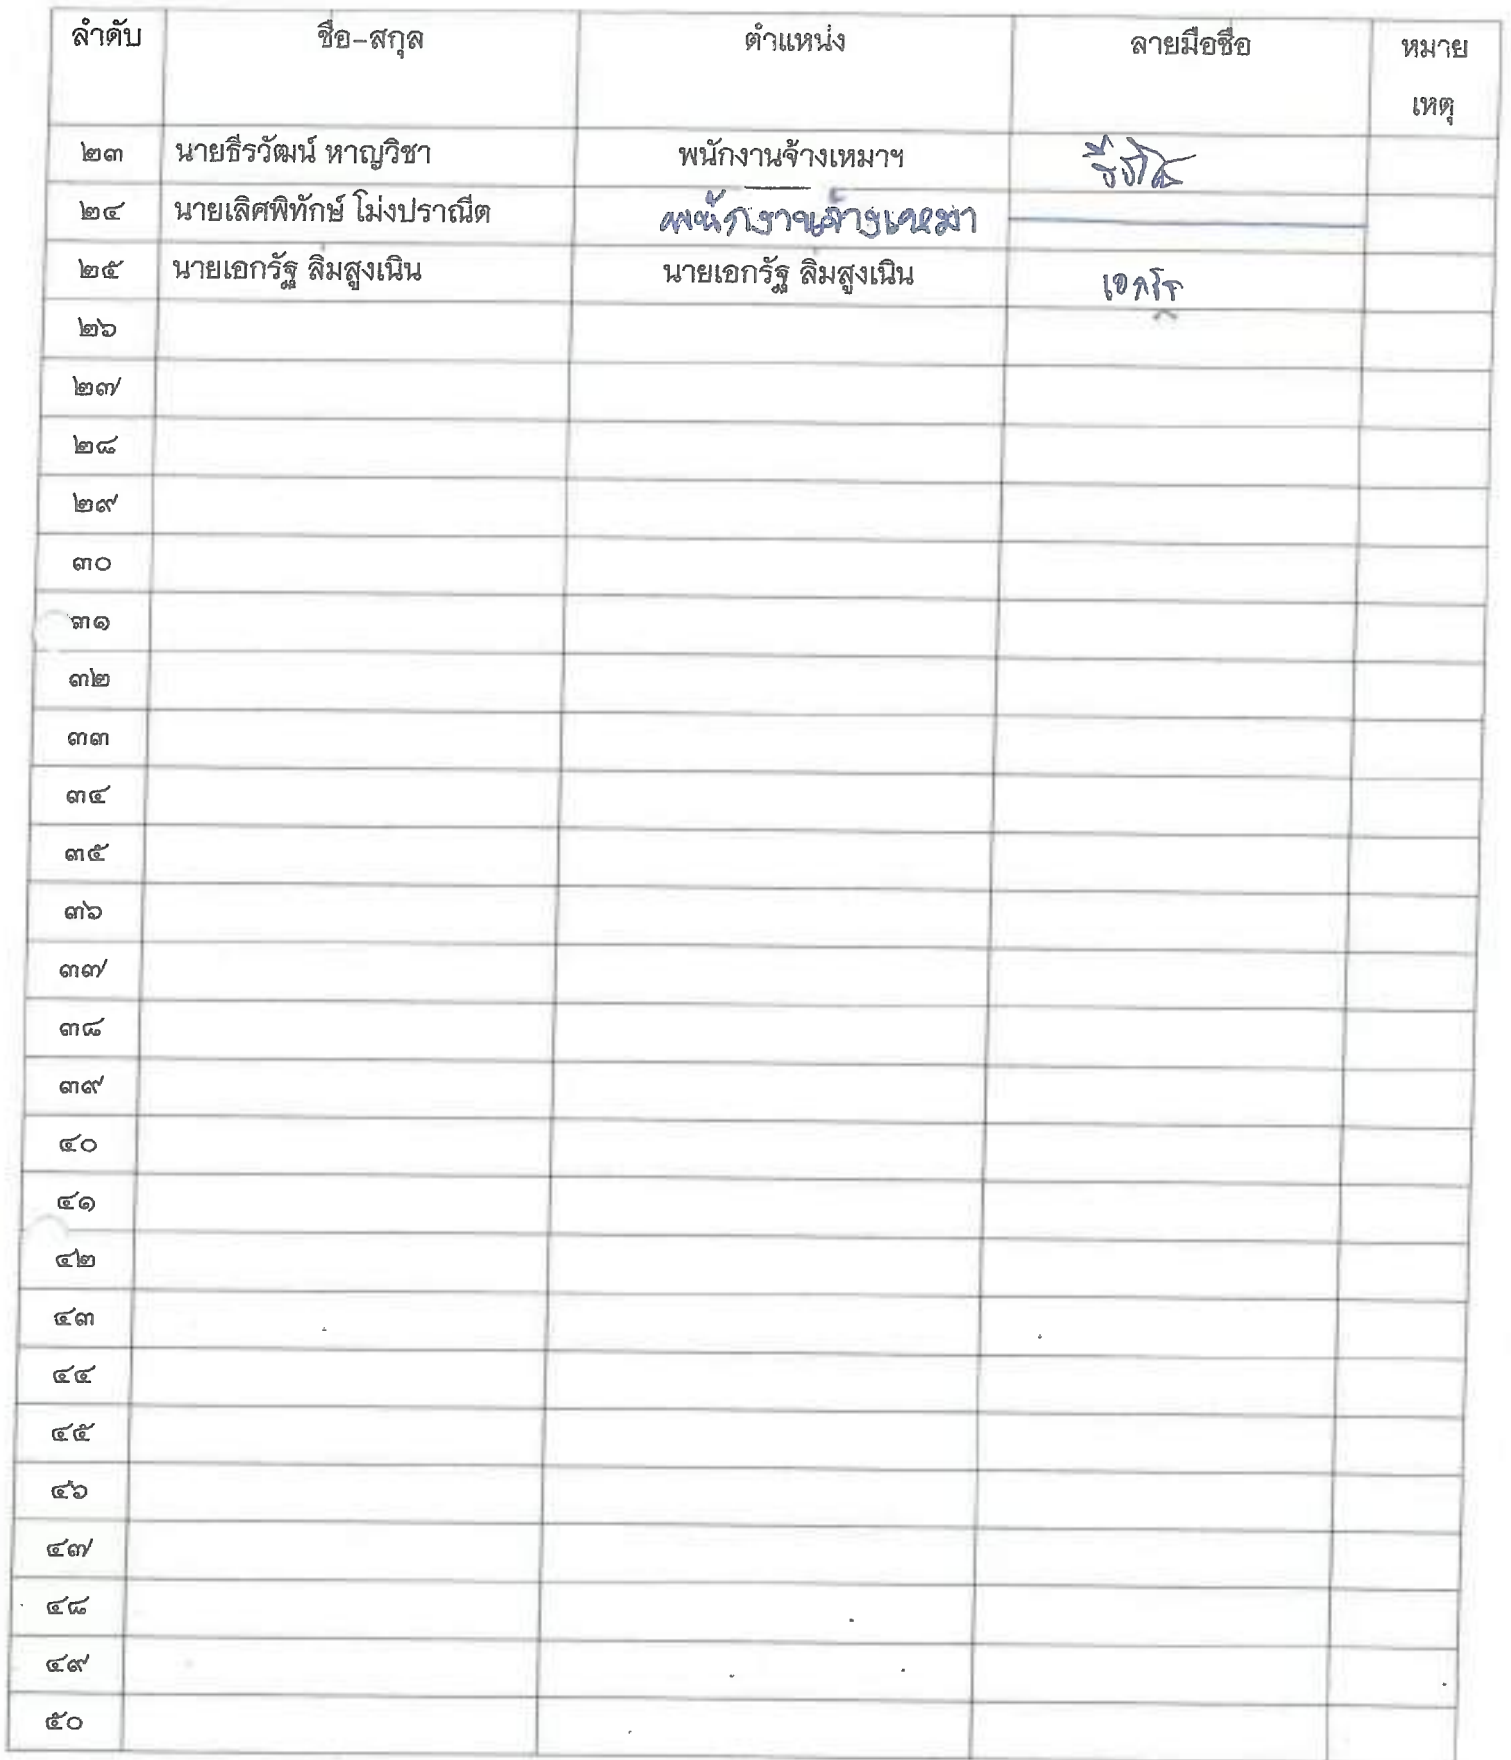 ลำดับ ชื่อ-สกุล ตำแหน่ง ลายมือชื่อ หมาย
เหตุ
๒๓ นายธีรวัฒน์ หาญวิชา พนักงานจ้างเหมาฯ
๒๔ นายเลิศพิทักษ์ โม่งปราณีต พนักงานจ้างเหมา
๒๕ นายเอกรัฐ ลิมสูงเนิน นายเอกรัฐ ลิมสูงเนิน เอกรัฐ
๒๖
๒๗
๒๘
๒๙
๓๐
๓๑
๓๒
๓๓
๓๔
๓๕
๓๖
๓๗
๓๘
๓๙
๔๐
๔๑
๔๒
๔๓
๔๔
๔๕
๔๖
๔๗
๔๘
๔๙
๕๐